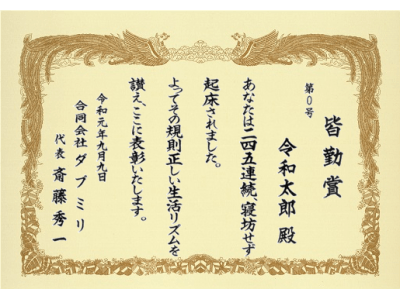 皆勤賞
第０号
令和太郎 殿
あなたは二四五連続、寝坊せず
起床されました。
よってその規則正しい生活リズムを
讃え、ここに表彰いたします。
令和元年九月九日
合同会社ダブミリ
代表 斎藤秀一